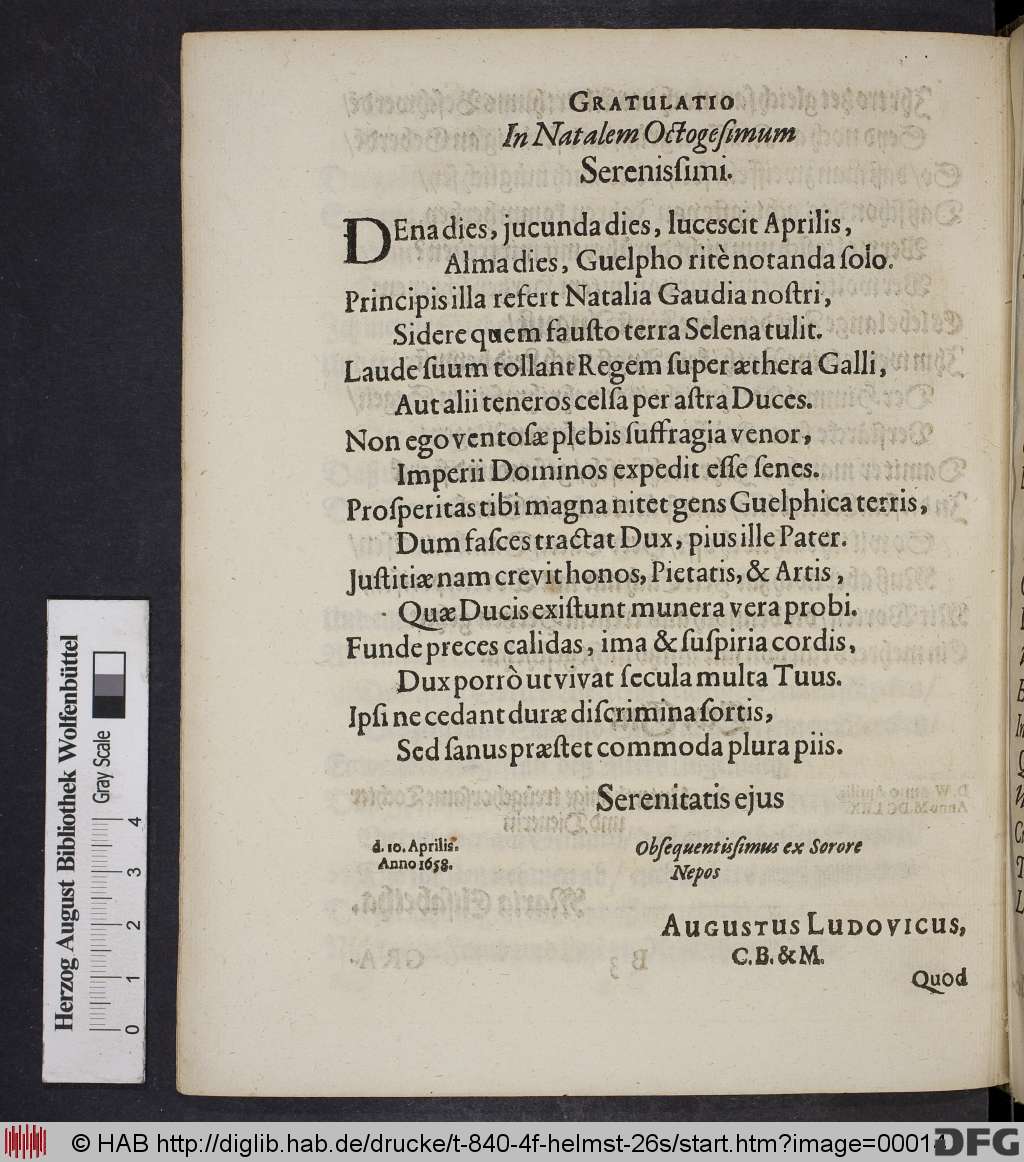 GRATULATIO
In Natalem Octogeſimum
Serenisſimi.
DEna dies, jucunda dies, lucescit Aprilis,
Alma dies, Guelpho ritè notanda ſolo.
Principis illa refert Natalia Gaudia noſtri,
Sidere quem fauſto terra Selena tulit.
Laude ſuum tollant Regem ſuper æthera Galli,
Aut alii teneros celſa per aſtra Duces.
Non ego ventoſæ plebis ſuffragia venor,
Imperii Dominos expedit eſſe ſenes.
Proſperitas tibi magna nitet gens Guelphica terris,
Dum faſces tractat Dux, pius ille Pater.
Juſtitiæ nam crevit honos, Pietatis, & Artis,
Quæ Ducis exiſtunt munera vera probi.
Funde preces calidas, ima & ſuſpiria cordis,
Dux porrò ut vivat ſecula multa Tuus.
Ipſi ne cedant duræ diſcrimina ſortis,
Sed ſanus præſtet commoda plura piis.
Serenitatis ejus
d. 10. Aprilis.
Anno 1658.
Obſequentisſimus ex Sorore
Nepos
AUGUSTUS LUDOVICUS,
C. B. & M.
Quod
Herzog August Bibliothek Wolfenbüttel
Gray Scale
0 1 2 3 4
© HAB http://diglib.hab.de/drucke/t-840-4f-helmst-26s/start.htm?image=00014
DFG